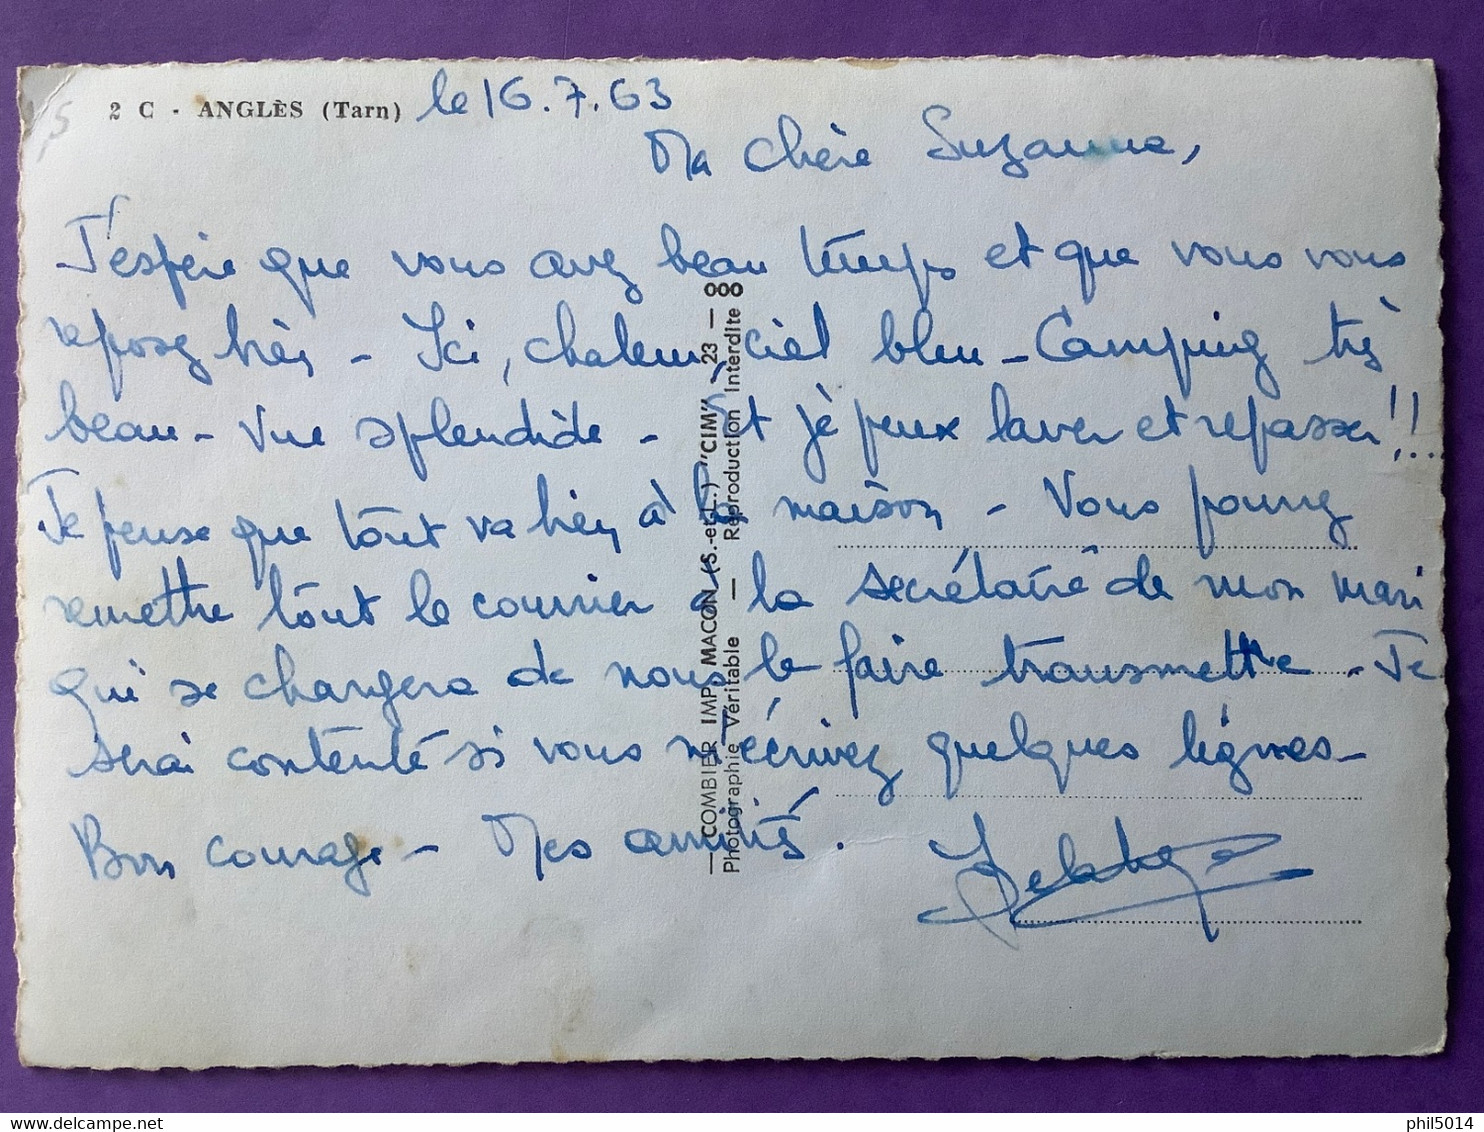 2 C - ANGLÈS (Tarn) le 16.7.63
Ma chère Suzanne,
J'espère que vous avez beau temps et que vous vous
reposez bien - Ici, chaleur, ciel bleu - Camping très
beau - Vue splendide - Et je peux laver et repasser !!...
Je pense que tout va bien à la maison - Vous pourrez
remettre tout le courrier à la secrétaire de mon mari
qui se chargera de nous le faire transmettre - Je
serai contente si vous m'écrivez quelques lignes -
Bon courage - Mes amitiés.
— COMBIER IMP. MACON (S.-et-L.) "CIM" 23 — 000
Photographie Véritable — Reproduction Interdite
phil5014